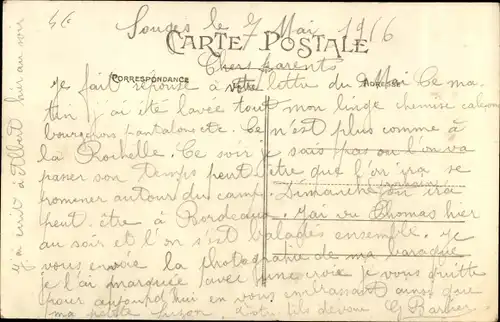 Souges le 7 Mai 1916
CARTE POSTALE
Chers parents
CORRESPONDANCE
ADRESSE
Je fait réponse à votre lettre du Mai Ce ma-
tin j'ai été lavée tout mon linge chemise caleçon
bourgerons pantalons etc. Ce n'est plus comme à
la Rochelle. Ce soir je sais pas ou l'on va
passer son temps peut-être que l'on ira se
promener autour du camp. Dimanche prochain on ira
peut être à Bordeaux. J'ai vu Thomas hier
au soir et l'on s'est baladés ensemble. Je
vous envoie la photographie de ma baraque
je l'ai marquée avec une croix je vous quitte
pour aujourd'hui en vous embrassant ainsi que
ma petite Suzon. Votre fils dévoué G Barbier
J'ai écrit à Albert hier au soir